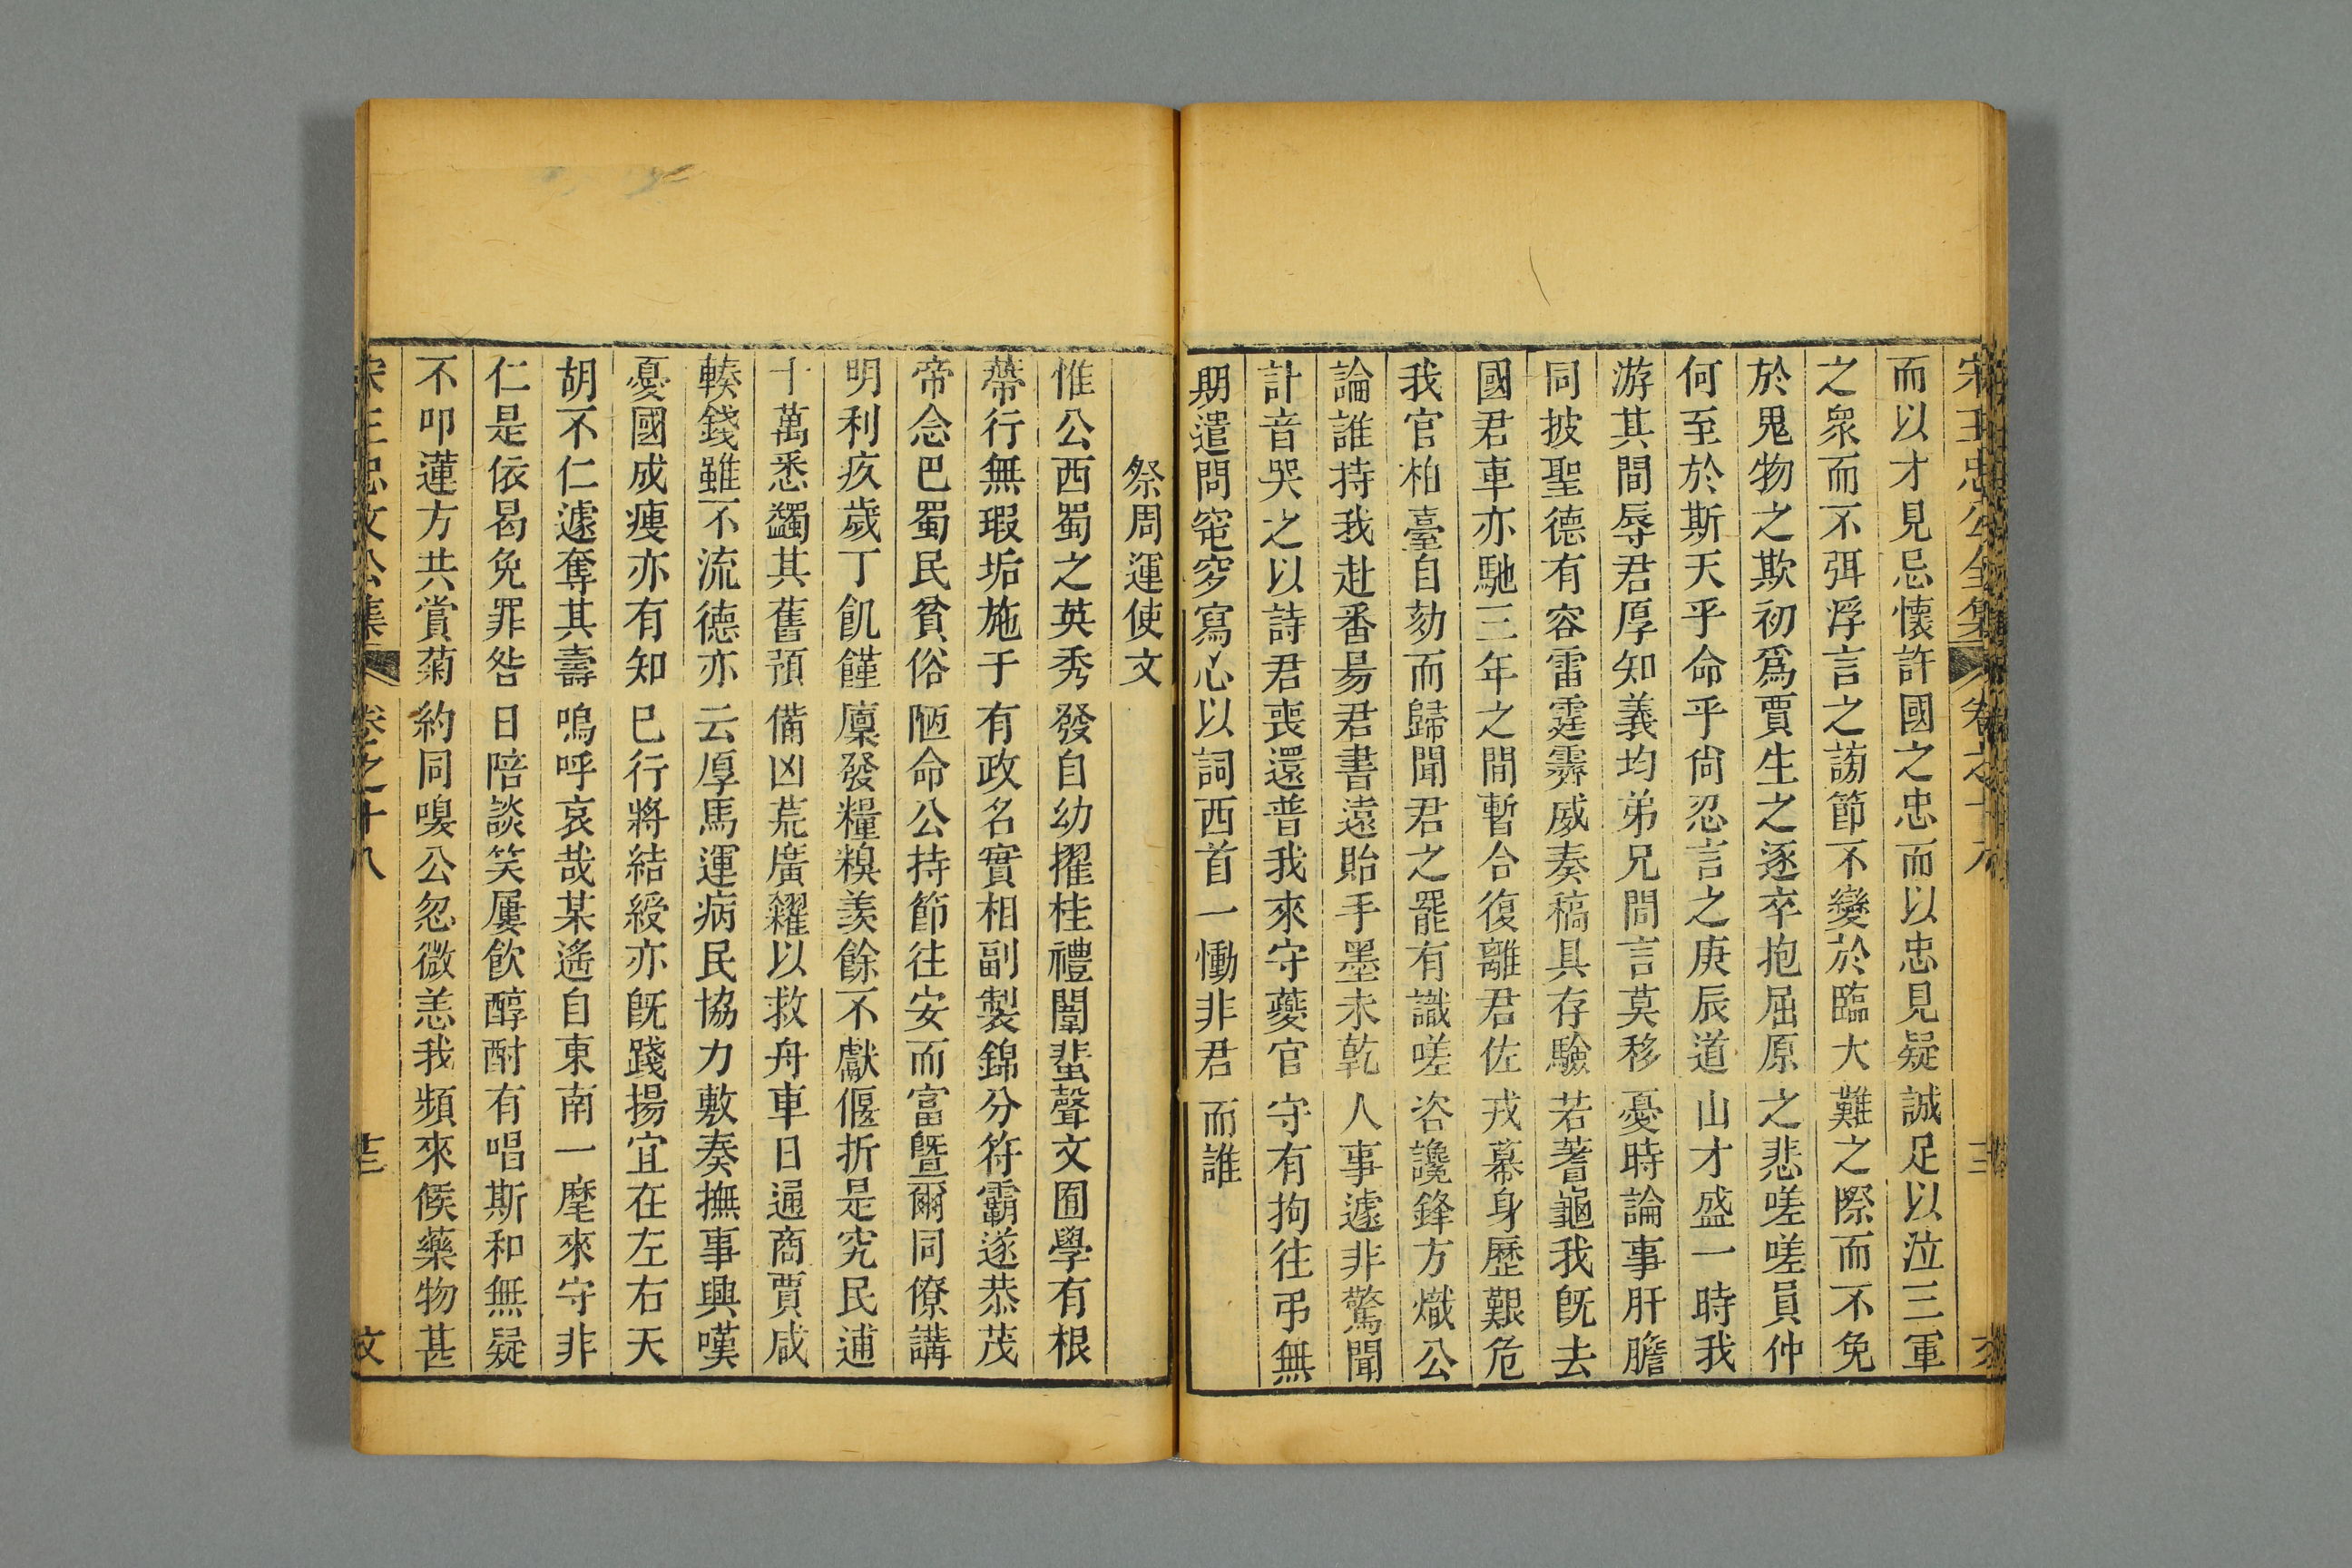 而以才見忌懷許國之忠而以忠見疑誠足以泣三軍
之衆而不弭浮言之謗節不變於臨大難之際而不免
於鬼物之欺初爲賈生之逐卒抱屈原之悲嗟嗟員仲
何至於斯天乎命乎尙忍言之庚辰道山才盛一時我
游其間辱君厚知義均弟兄問言莫移憂時論事肝膽
同披聖德有容雷霆霽威奏稿具存驗若蓍龜我旣去
國君車亦馳三年之間暫合復離君佐戎幕身歷艱危
我官柏臺自劾而歸聞君之罷有識嗟咨讒鋒方熾公
論誰持我赴番昜君書遠貽手墨未乾人事遽非驚聞
訃音哭之以詩君喪還普我來守夔官守有拘往弔無
期遣問窀穸寫心以詞西首一慟非君而誰
祭周運使文
惟公西蜀之英秀發自幼擢桂禮闈蜚聲文囿學有根
蔕行無瑕垢施于有政名實相副製錦分符霸遂恭茂
帝念巴蜀民貧俗陋命公持節往安而富曁爾同僚講
明利疚歲丁飢饉廩發糧糗羨餘不獻偃折是究民逋
十萬悉蠲其舊預備凶荒廣糴以救舟車日通商賈咸
輳錢雖不流德亦云厚馬運病民協力敷奏撫事興嘆
憂國成瘦亦有知己行將結綬亦旣踐揚宜在左右天
胡不仁遽奪其壽嗚呼哀哉某遙自東南一麾來守非
仁是依曷免罪咎日陪談笑屢飮醇酎有唱斯和無疑
不叩蓮方共賞菊約同嗅公忽微恙我頻來候藥物甚
宋王忠文公集 卷之十八 文